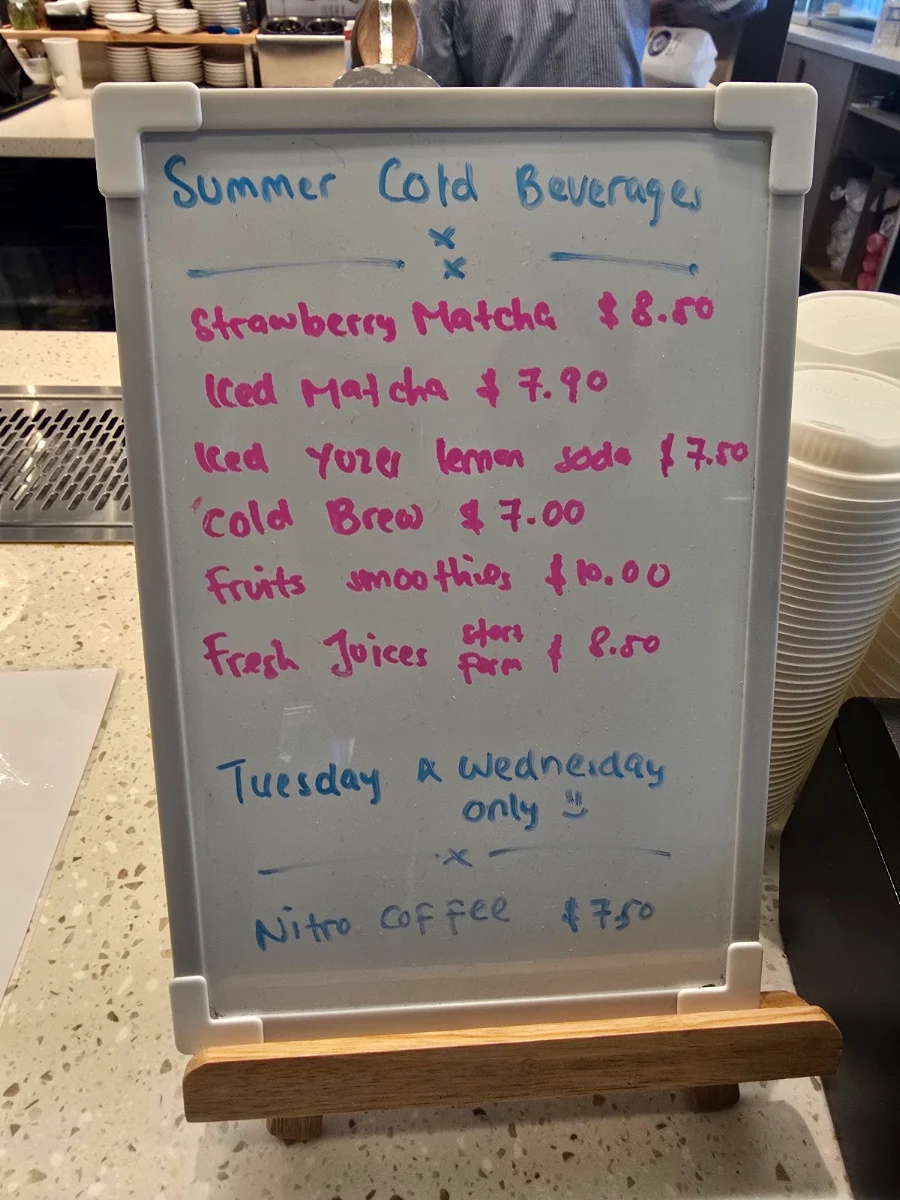 Summer Cold Beverages
x
x
Strawberry Matcha $8.50
Iced Matcha $7.90
Iced Yuzu lemon soda $7.50
Cold Brew $7.00
Fruits smoothies $10.00
Fresh Juices start form $8.50
Tuesday & Wednesday
only
x
Nitro Coffee $7.50